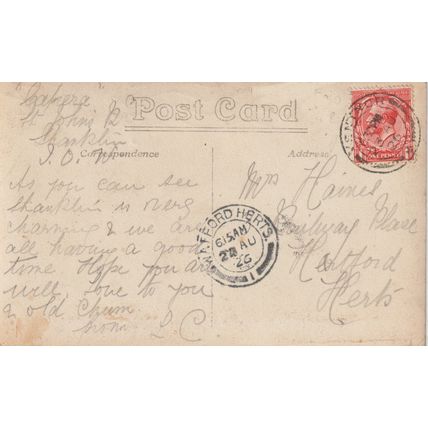 "Cabrera"
St Johns R
Shanklin
I.O.W.
Post Card
Correspondence
Address
As you can see
Shanklin is very
charming & we are
all having a good
time Hope you are
well Love to you
& old Chum
from L C
Mrs Haines
Railway Place
Hertford
Herts
HERTFORD HERTS
6.15AM
AU
26
1
ONE PENNY